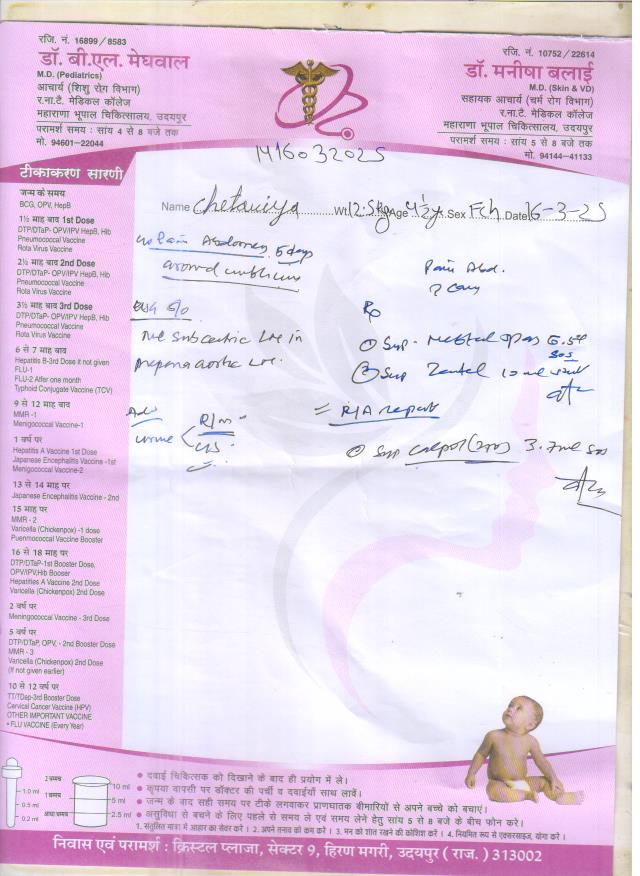 रजि. नं. 16899/8583
डॉ. बी.एल. मेघवाल
M.D. (Pediatrics)
आचार्य (शिशु रोग विभाग)
र.ना.टै. मेडिकल कॉलेज
महाराणा भूपाल चिकित्सालय, उदयपुर
परामर्श समय : सांय 4 से 8 बजे तक
मो. 94601-22044
रजि. नं. 10752/22614
डॉ. मनीषा बलाई
M.D. (Skin & VD)
सहायक आचार्य (चर्म रोग विभाग)
र.ना.टै. मेडिकल कॉलेज
महाराणा भूपाल चिकित्सालय, उदयपुर
परामर्श समय : सांय 5 से 8 बजे तक
मो. 94144-41133
टीकाकरण सारणी
जन्म के समय
BCG, OPV, HepB
1½ माह बाद 1st Dose
DTP/DTaP- OPV/IPV HepB, Hib
Pneumococcal Vaccine
Rota Virus Vaccine
2½ माह बाद 2nd Dose
DTP/DTaP- OPV/IPV HepB, Hib
Pneumococcal Vaccine
Rota Virus Vaccine
3½ माह बाद 3rd Dose
DTP/DTaP- OPV/IPV HepB, Hib
Pneumococcal Vaccine
Rota Virus Vaccine
6 से 7 माह बाद
Hepatitis B-3rd Dose it not given
FLU-1
FLU-2 Atfer one month
Typhoid Conjugate Vaccine (TCV)
9 से 12 माह बाद
MMR -1
Menigococcal Vaccine-1
1 वर्ष पर
Hepatitis A Vaccine 1st Dose
Japanese Encephalitis Vaccine -1st
Menigococcal Vaccine-2
13 से 14 माह पर
Japanese Encephalitis Vaccine - 2nd
15 माह पर
MMR - 2
Varicella (Chickenpox) -1 dose
Puenmococcal Vaccine Booster
16 से 18 माह पर
DTP/DTaP-1st Booster Dose,
OPV/IPV,Hib Booser
Hepatities A Vaccine 2nd Dose
Varicella (Chickenpox) 2nd Dose
2 वर्ष पर
Meningococcal Vaccine - 3rd Dose
5 वर्ष पर
DTP/DTaP, OPV, - 2nd Booster Dose
MMR - 3
Varicella (Chickenpox) 2nd Dose
(If not given earlier)
10 से 12 वर्ष पर
TT/TDap-3rd Booster Dose
Cervical Cancer Vaccine (HPV)
OTHER IMPORTANT VACCINE
• FLU VACCINE (Every Year)
1416032025
Name Wt 12.5kg Age 4½yr Sex Fch Date 16-3-25
Pain Abdomen 5 days
around umbilicus
Pain Abd.
USG S/o
in
Adv
urine R/m
① Syp. 6.5ml
SOS
② Syp Zentel 10 ml
= R/A report
① Syp calpol (250) 3.7ml sos
2 चम्मच
1 चम्मच
आधा चम्मच
1.0 ml
0.5 ml
0.2 ml
10 ml
5 ml
2.5 ml
• दवाई चिकित्सक को दिखाने के बाद ही प्रयोग में ले।
• कृपया वापसी पर डॉक्टर की पर्ची व दवाईयाँ साथ लावें।
• जन्म के बाद सही समय पर टीके लगवाकर प्राणघातक बीमारियों से अपने बच्चे को बचाएं।
• असुविधा से बचने के लिए पहले से समय ले एवं समय लेने हेतु सांय 5 से 8 बजे के बीच फोन करे।
1. संतुलित मात्रा में आहार का सेवन करे। 2. अपने तनाव को कम करे। 3. मन को शांत रखने की कोशिश करे। 4. नियमित रूप से एक्सरसाइज, योगा करे।
निवास एवं परामर्श : क्रिस्टल प्लाजा, सेक्टर 9, हिरण मगरी, उदयपुर (राज.) 313002